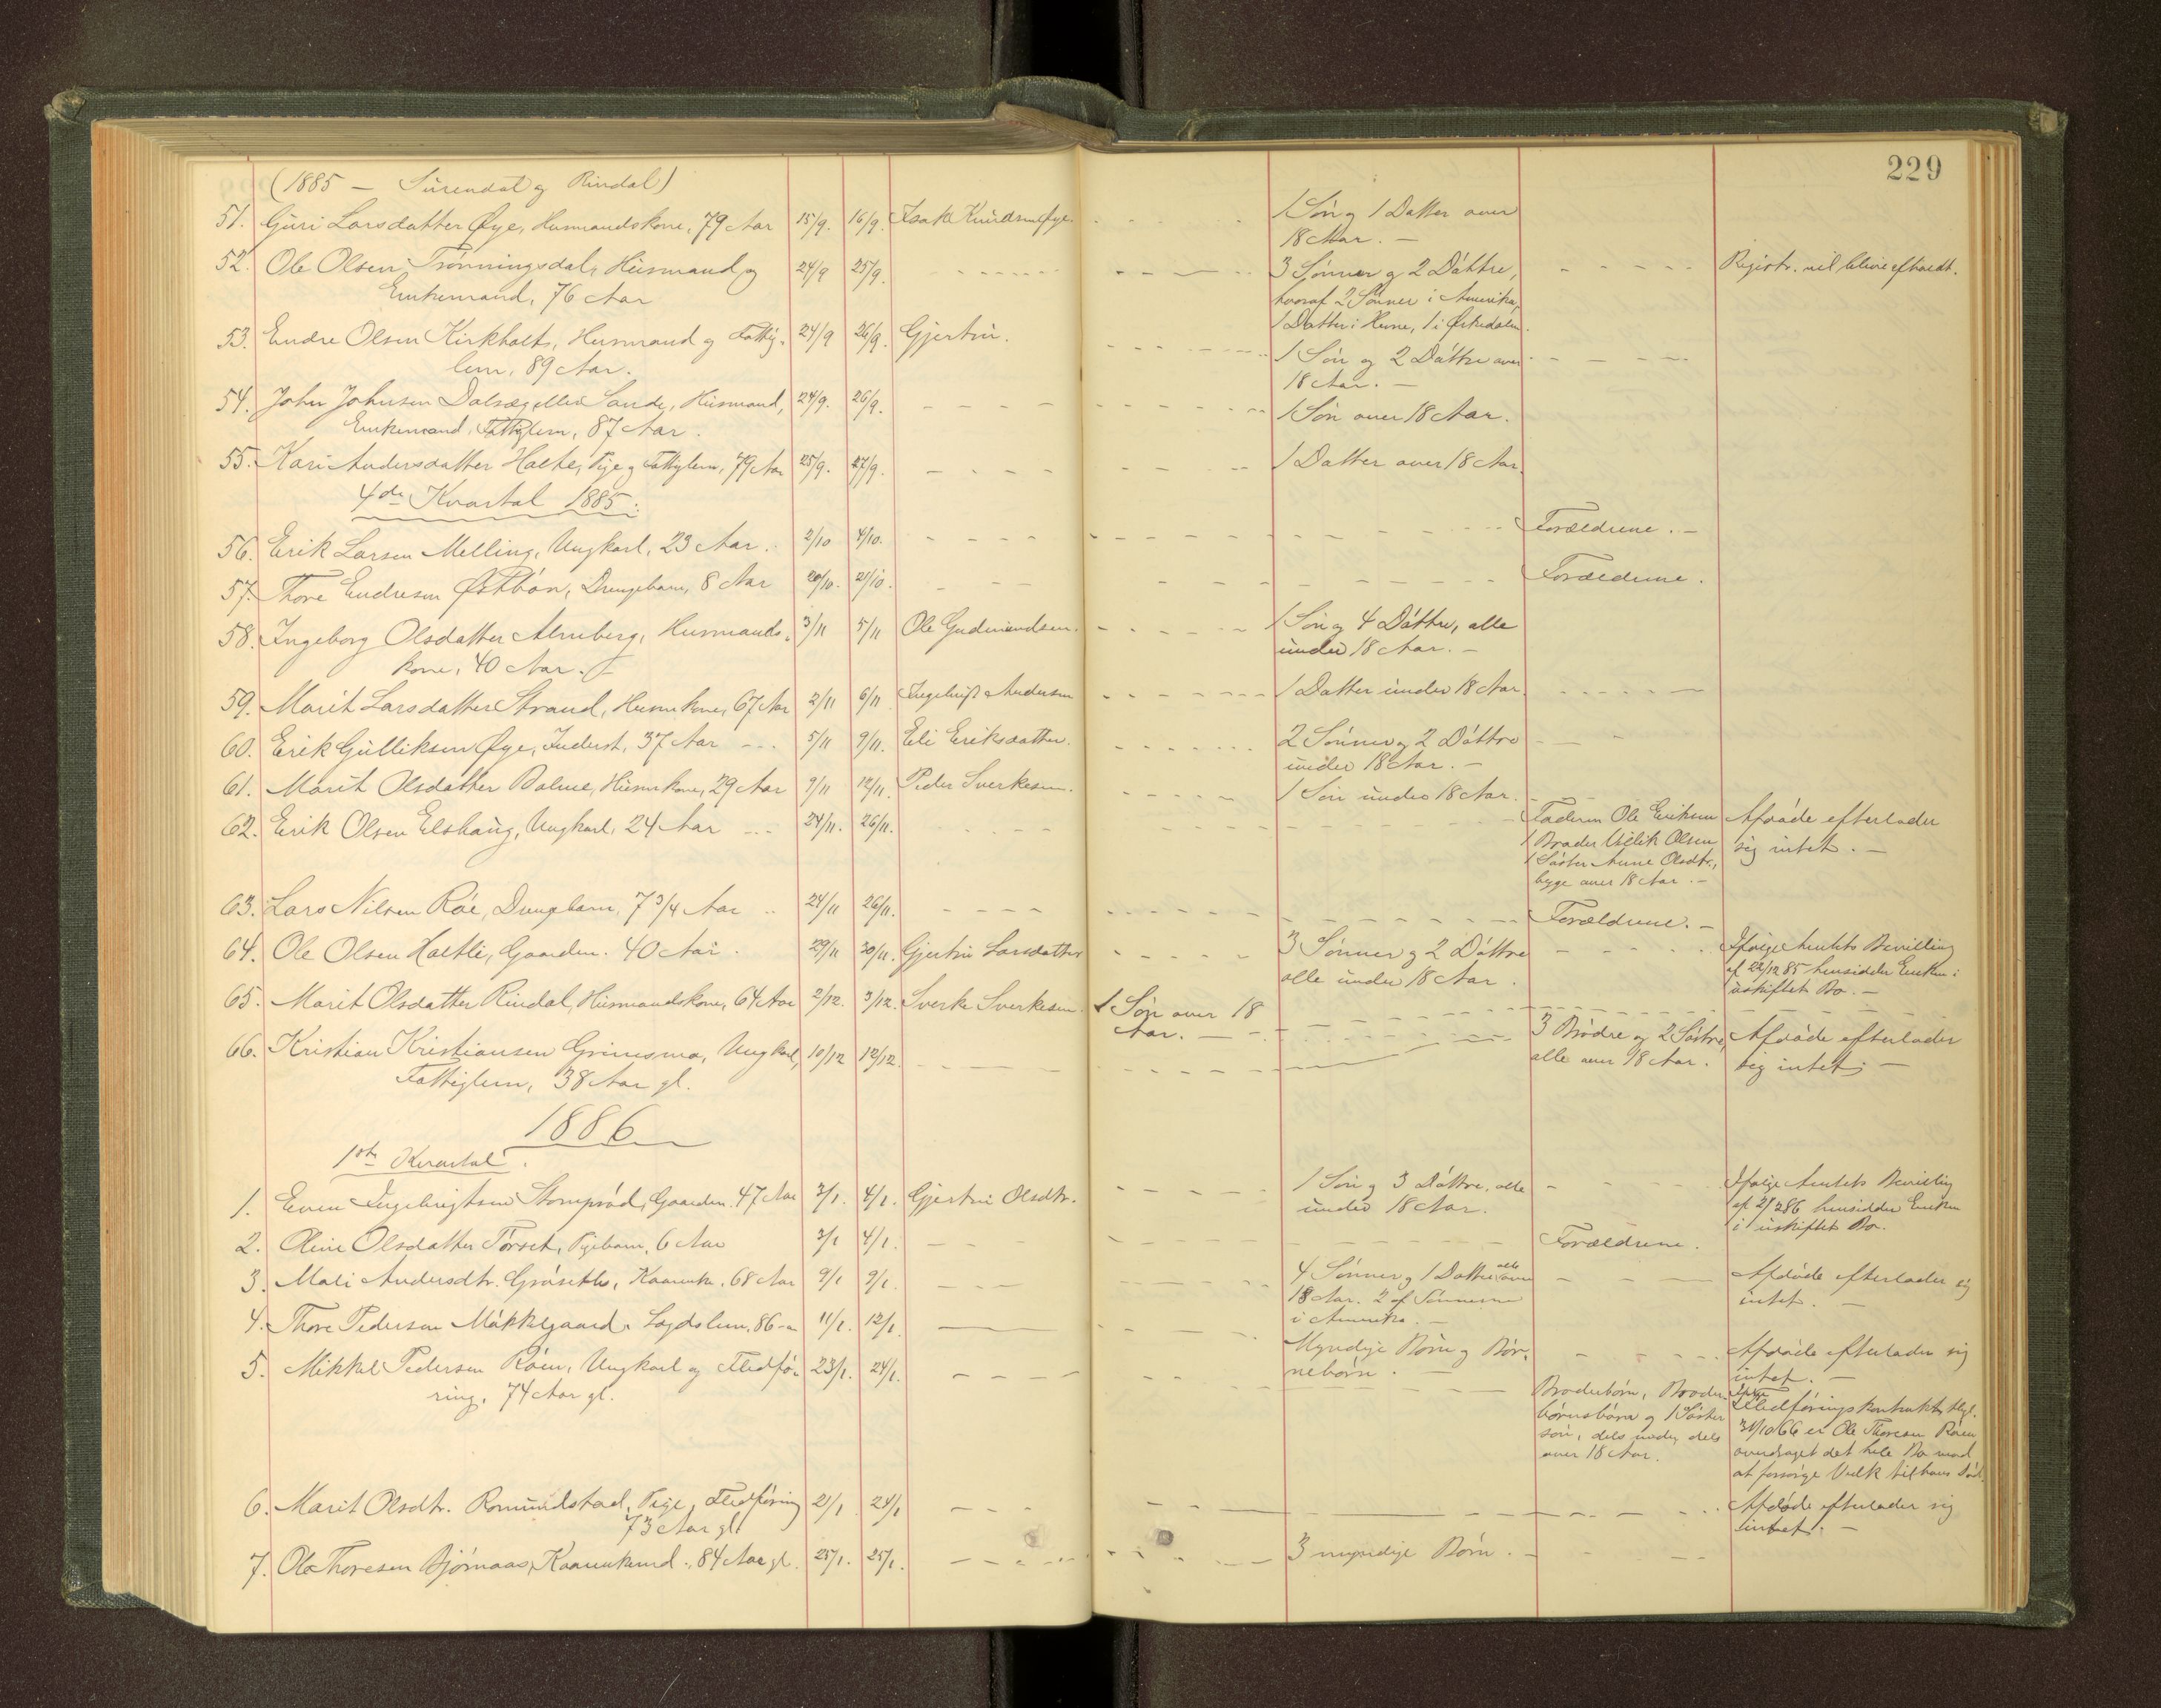 229
(1885 — Surendal og Rindal)
51. Guri Larsdatter Øye, Husmandskone, 79 Aar 15/9. 16/9. Isak Knudsen Øye. 1 Søn og 1 Datter over
18 Aar. —
52. Ole Olsen Trønningsdal, Husmand og 24/9 25/9. 3 Sønner og 2 Døttre, Registr. vil blive afholdt.
Enkemand, 76 Aar hvoraf 2 Sønner i Amerika,
1 Datter i Hevne, 1 i Ørkedalen.
53. Endre Olsen Kirkholt, Husmand og Fattig- 24/9 26/9. Gjertru. 1 Søn og 2 Døttre over
lem, 89 Aar. 18 Aar. —
54. John Johnsen Dalsæg eller Sande, Husmand, 24/9. 26/9. 1 Søn over 18 Aar.
Enkemand, Fattiglem, 87 Aar.
55. Kari Andersdatter Halte, Pige og Fattiglem, 79 Aar 25/9. 27/9. 1 Datter over 18 Aar.
4de Kvartal 1885.
56. Erik Larsen Melling, Ungkarl, 23 Aar. 2/10 4/10. Forældrene. —
57. Thore Endresen Østbøn, Drengebarn, 8 Aar 20/10. 21/10. Forældrene.
58. Ingeborg Olsdatter Almberg, Husmands- 3/11 5/11 Ole Gudmundsen. 1 Søn og 4 Døttre, alle
kone, 40 Aar. — under 18 Aar. —
59. Marit Larsdatter Strand, Husmkone, 67 Aar 2/11 6/11 Ingebrigt Andersen 1 Datter under 18 Aar.
60. Erik Gulliksen Øye, Inderst, 37 Aar 5/11 9/11. Eli Eriksdatter. 2 Sønner og 2 Døttre
under 18 Aar. —
61. Marit Olsdatter Bolme, Husmkone, 29 Aar 9/11 12/11. Peder Sverkesen. 1 Søn under 18 Aar.
62. Erik Olsen Elshaug, Ungkarl, 24 Aar 24/11. 26/11. Faderen Ole Eriksen Afdøde efterlader
1 Broder Olsen sig intet. —
1 Søster Anne Olsdtr.,
begge over 18 Aar. —
63. Lars Nilsen Røe, Drengebarn, 7 3/4 Aar 24/11 26/11. Forældrene. —
64. Ole Olsen Haltli, Gaardm. 40 Aar. 29/11 30/11. Gjertru Larsdatter 3 Sønner og 2 Døttre Ifølge Amtets Bevilling
alle under 18 Aar. af 22/12 85 hensidder Enken i
uskiftet Bo. —
65. Marit Olsdatter Rindal, Husmandskone, 64 Aar 2/12. 3/12. Sverke Sverkesen. 1 Søn over 18
Aar. —
66. Kristian Kristiansen Grimsmo, Ungkarl, 10/12 12/12. 3 Brødre og 2 Søstre, Afdøde efterlader
Fattiglem, 38 Aar gl. alle over 18 Aar. sig intet. —
1886
1ste Kvartal.
1. Even Ingebrigtsen Stomprød, Gaardm. 47 Aar 3/1. 4/1. Gjertru Olsdtr. 1 Søn og 3 Døttre, alle Ifølge Amtets Bevilling
under 18 Aar. af 2/2 86 hensidder Enken
i uskiftet Bo.
2. Oline Olsdatter Tørset, Pigebarn, 6 Aar 3/1 4/1. Forældrene.
3. Mali Andersdtr. Grøsetli, Kaarenke, 68 Aar 9/1 9/1. 4 Sønner og 1 Datter alle over Afdøde efterlader sig
18 Aar. 2 af Sønnerne intet. —
i Amerika. —
4. Thore Pedersen Møkkelgaard, Lægdslem, 86 — 11/1. 12/1. Myndige Børn og Bør- Afdøde efterlader sig
nebørn. — intet. —
5. Mikkel Pedersen Røen, Ungkarl og Fledfø- 23/1. 24/1. Broderbørn, Broder- Ifølge Fledføringskontrakt, thgl.
ring, 74 Aar gl. børnsbørn og 1 Søster- 31/10 66 er Ole Thoresen Røen
søn, dels under, dels overdraget det hele Bo mod
over 18 Aar. at forsørge Vedk. til hans Død.
6. Marit Olsdtr. Romundstad, Pige, Fledføring 21/1 24/1 Afdøde efterlader sig
73 Aar gl. intet. —
7. Ole Thoresen Bjørnaas, Kaarenkemd., 84 Aar gl. 25/1. 25/1. 3 myndige Børn. —